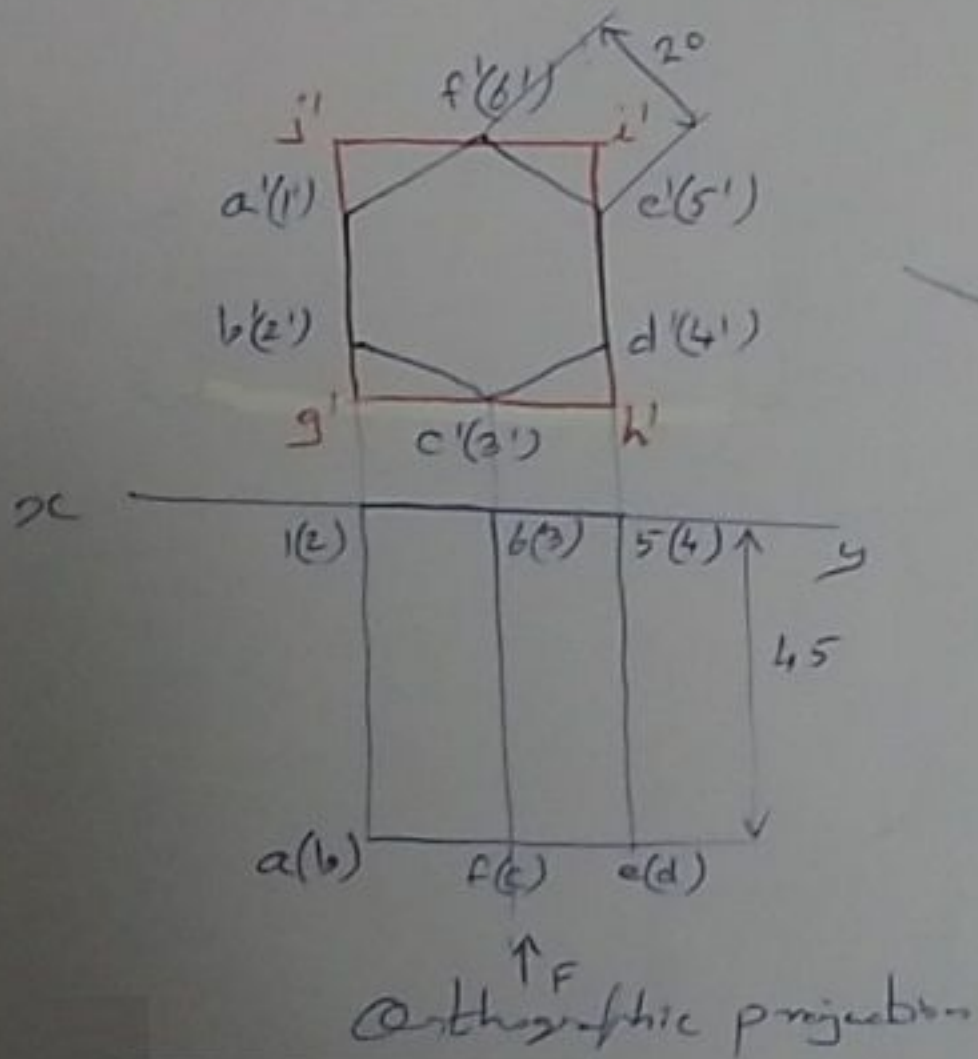 20
f'(6')
j' i'
a'(1') e'(5')
b'(2') d'(4')
g' c'(3') h'
x 1(2) 6(3) 5(4) y
45
a(b) f(c) e(d)
↑ F
Orthographic projection